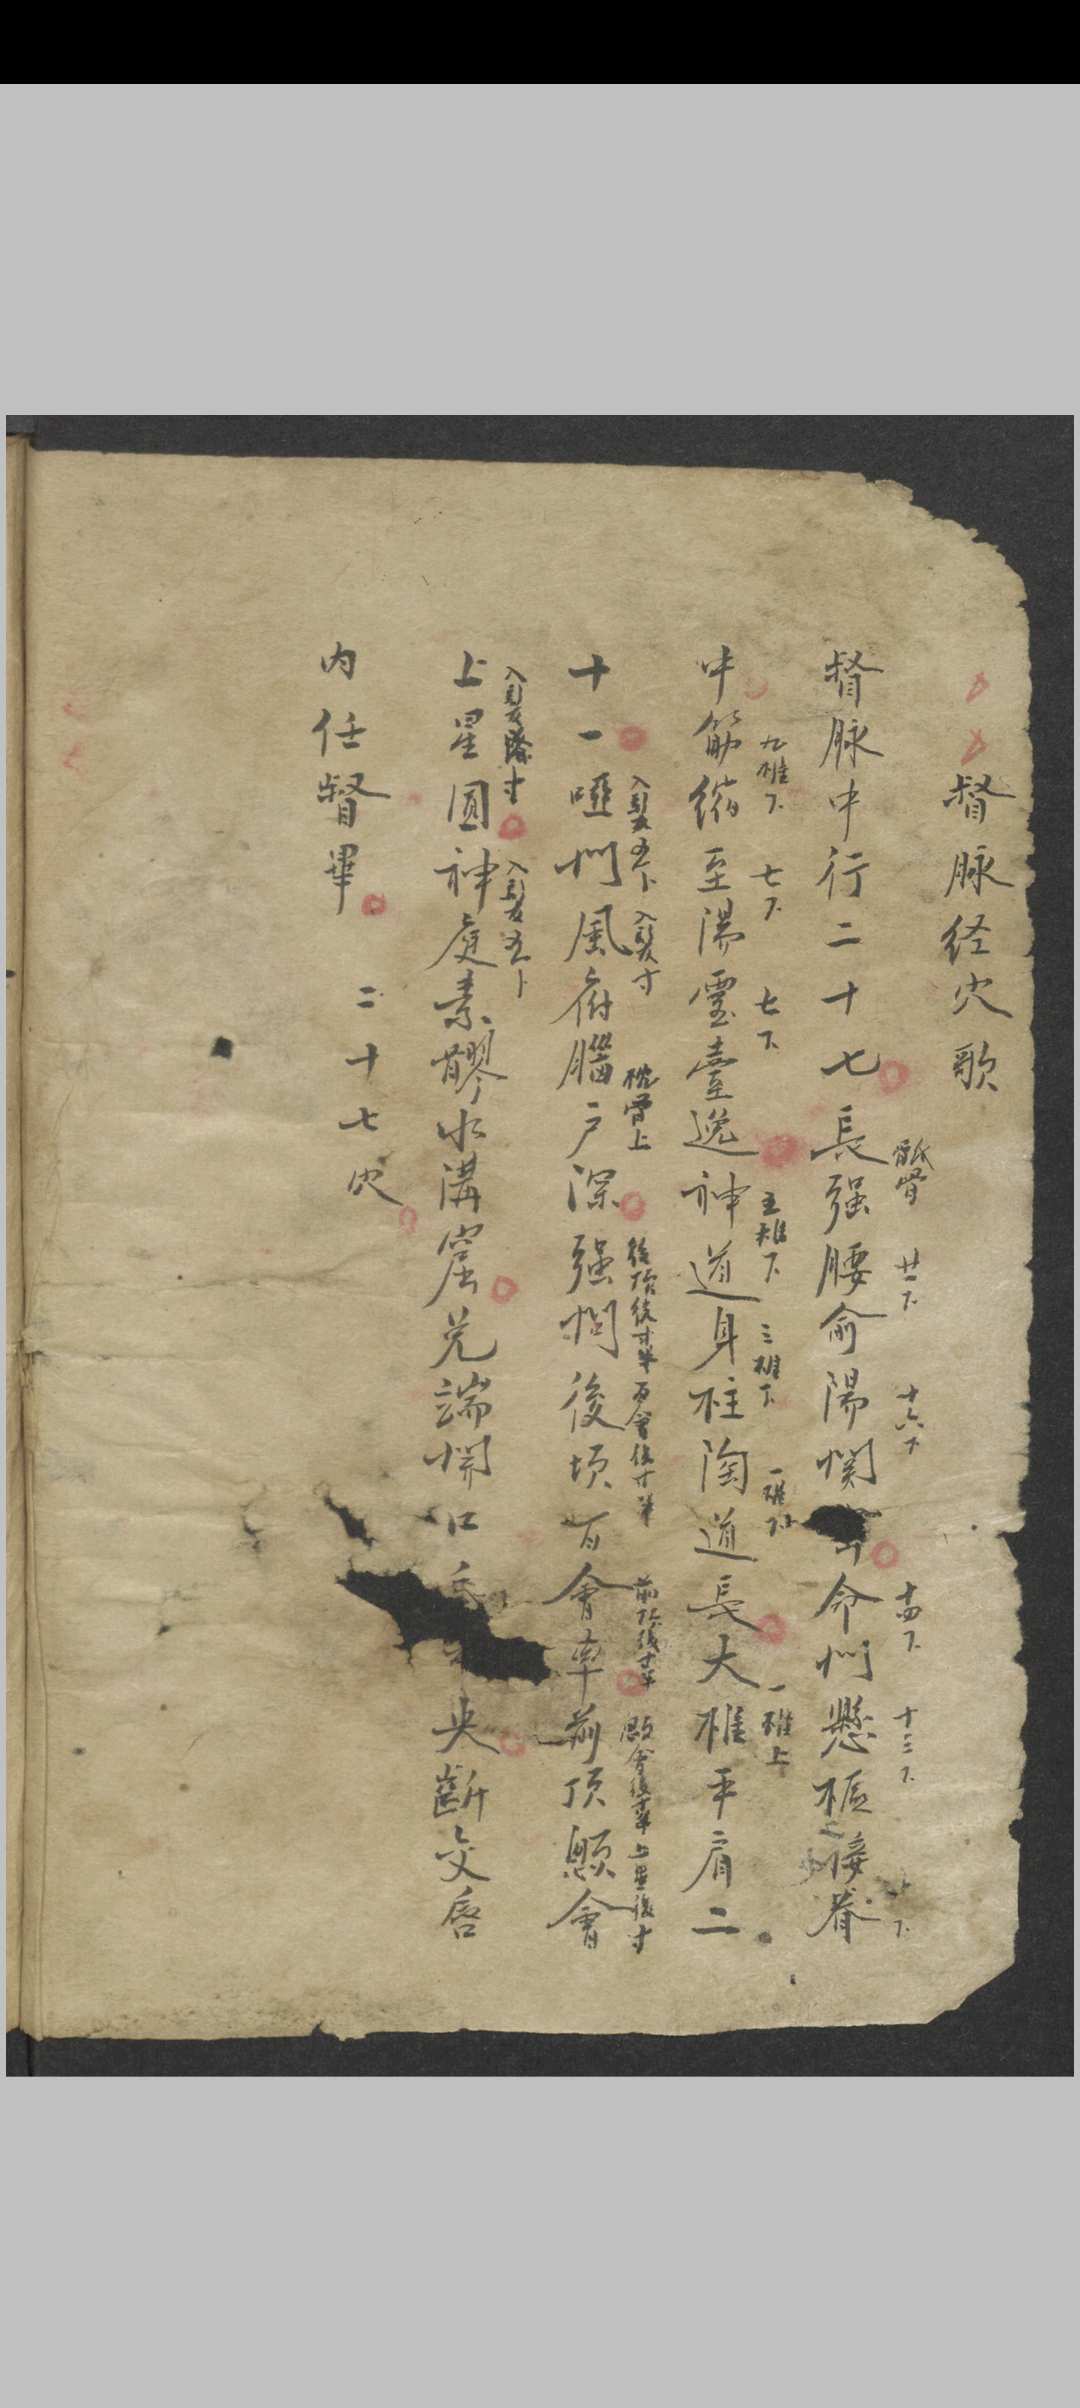 督脉经穴歌
骶骨 廿一下 十六下 十四下 十三下 下
督脉中行二十七長强腰俞陽関命門懸樞接脊
九椎下 七下 七下 五椎下 三椎下 一椎下 一椎上
中筋縮至陽靈臺逸神道身柱陶道長大椎平肩二
入髮五卜 入髮寸 枕骨上 後頂後寸半 百會後寸半 前頂後寸半 顖會後寸半 上星後寸
十一啞門風府腦户深强間後頂百會率前頂顖會
入髮際寸 入髮五卜
上星圓神庭素髎水溝窟兑端開口央齗交唇
内任督畢 二十七穴